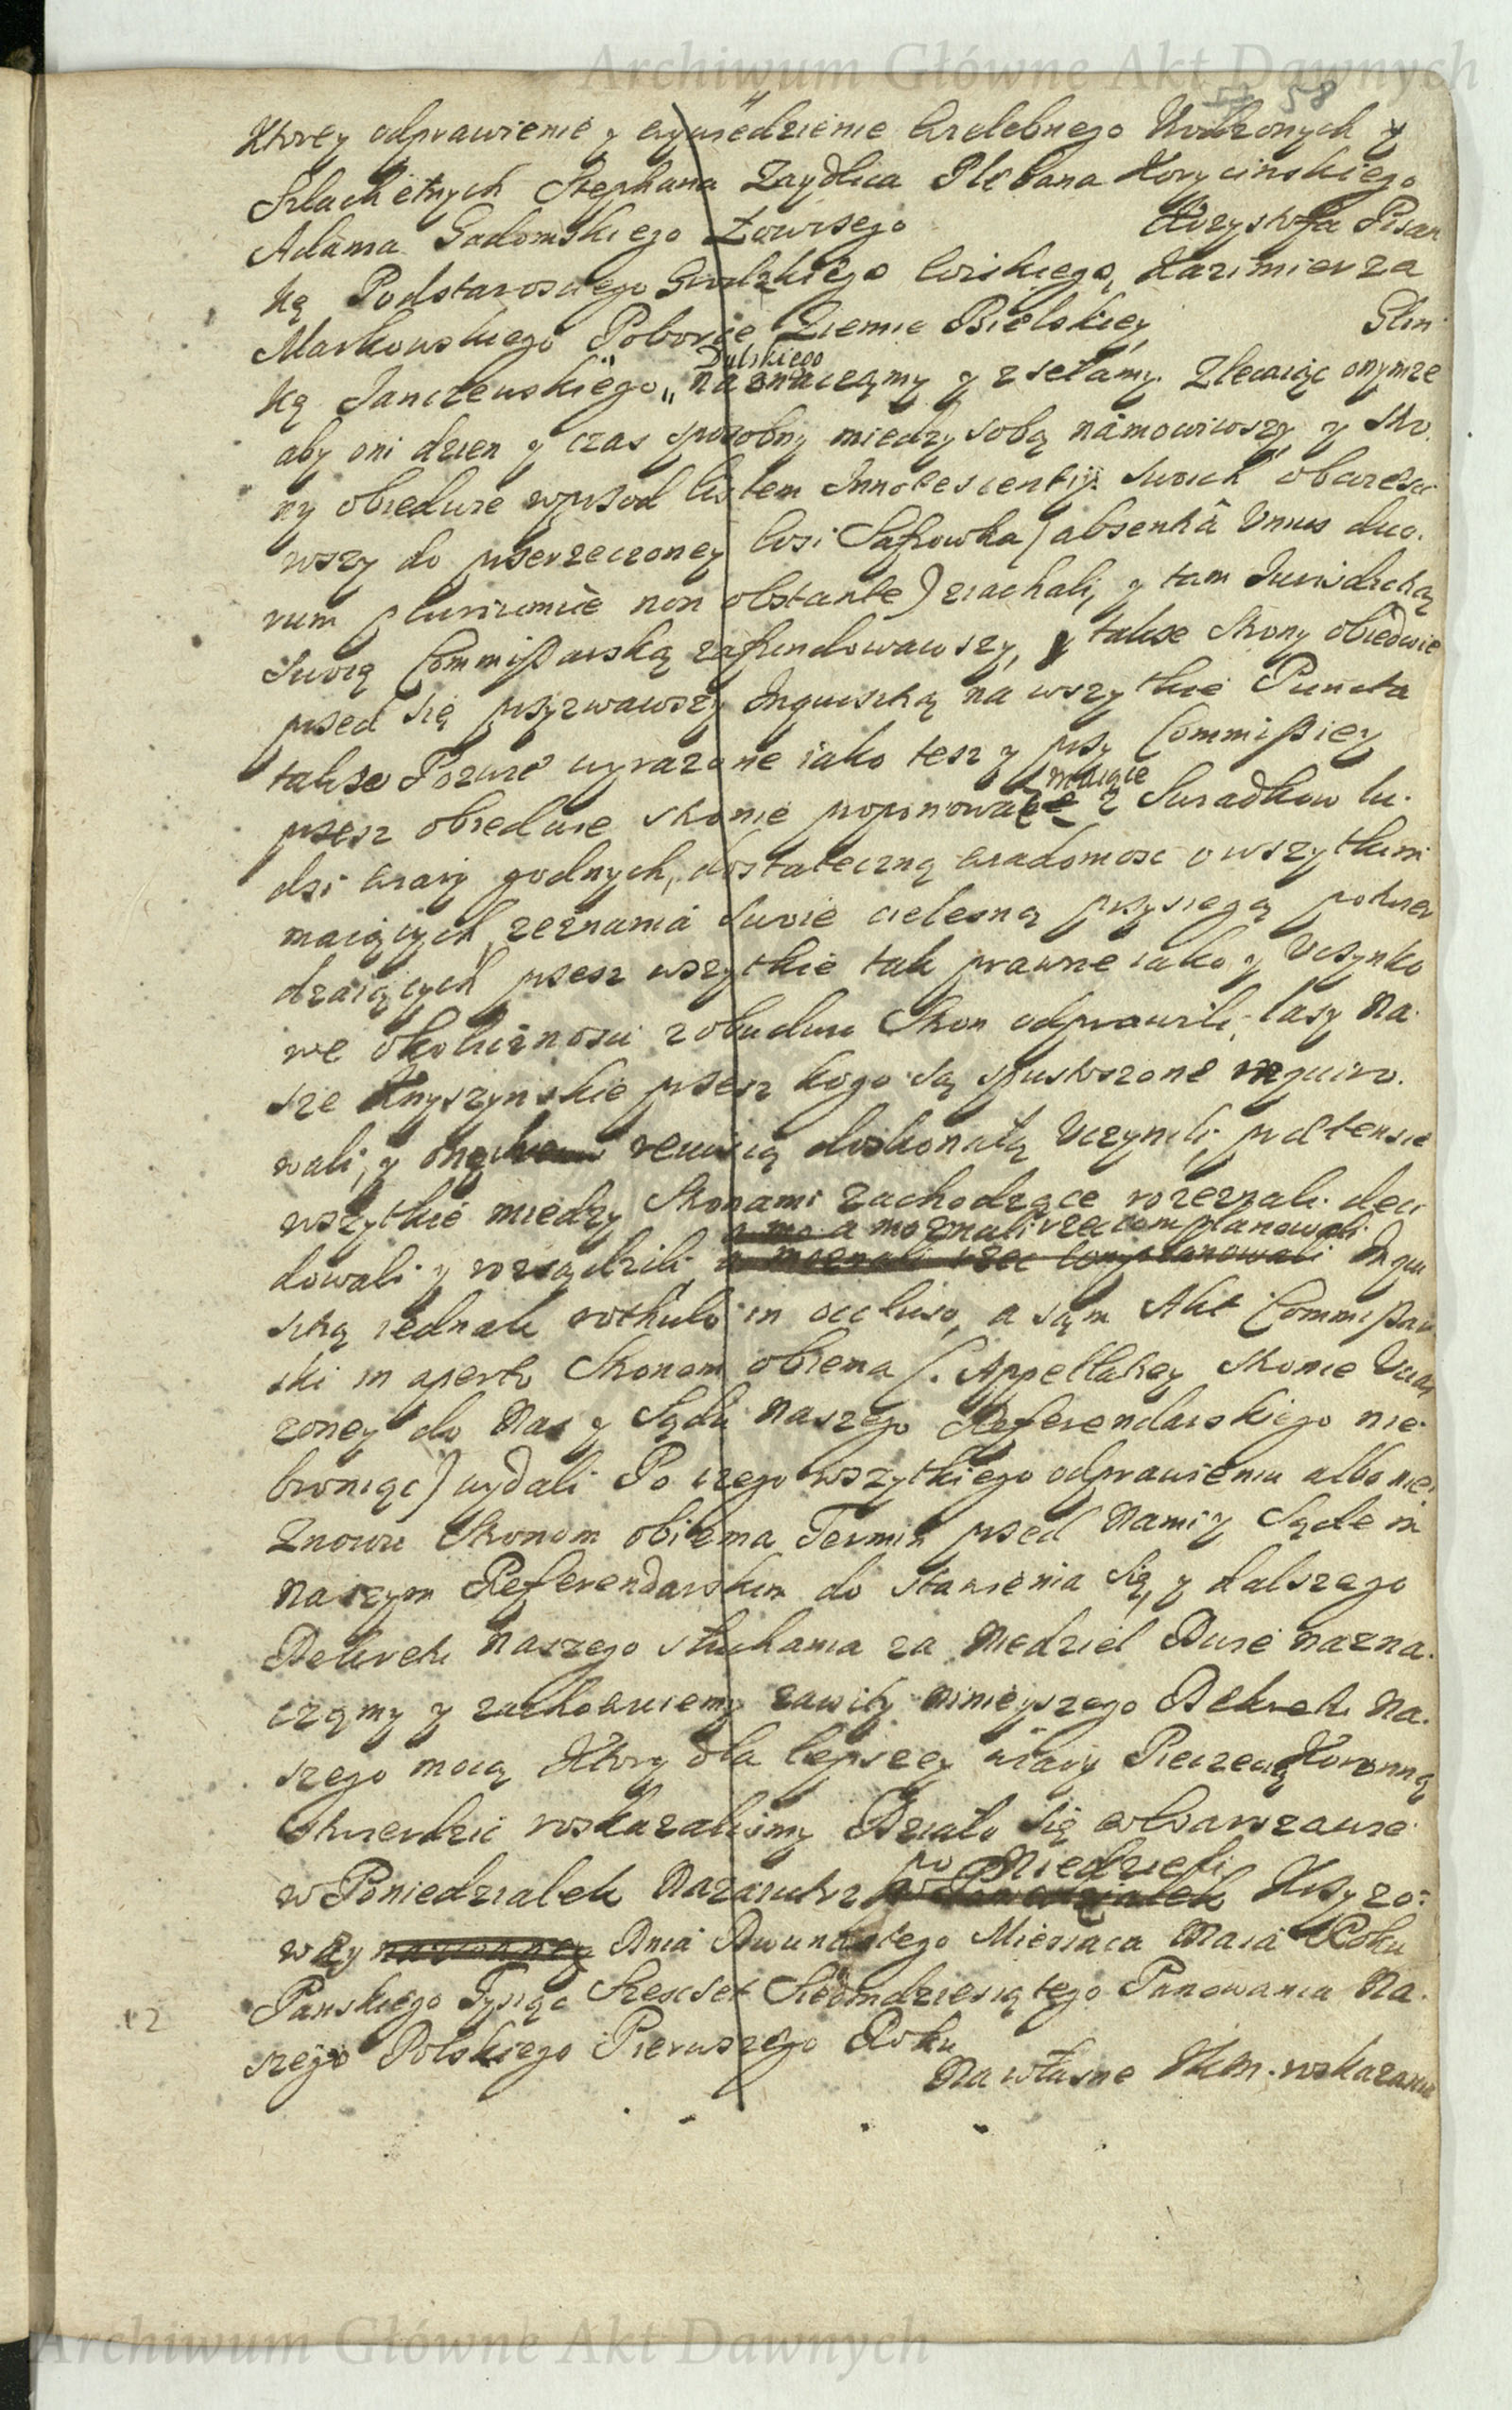 Archiwum Główne Akt Dawnych
58
Ktorey odprawienie y wywiedzienie Wielebnego Urodzonych y
Szlachetnych Stephana Zaydlica Plebana Korycinskiego
Adama Gadomskiego Łowczego Krzysztofa Pisan
ką Podstarosciego Grodzkiego Kazimierza
Markowskiego Poborce Ziemie Bielskiey Glin
Dulskiego
ką Janczewskiego „ naznaczamy y zsełamy. Zlecaiąc onymze
aby oni dzien y czas sposobny miedzy sobą námowiwszy y stro
ny obiedwie wprzod listem Innotescentiy swoich obwiesci
wszy do przerzeczoney wsi Safrowka) absentiâ unius duo.
rum pluriumve non obstante) ziachali, y tam Jurisdictią
swoię Commissarską zafundowawszy, y takze strony obiedwie
przed się przyzwawszy Inquisitią na wszytkie Puncta
takze Pozwie wyrazone iako tesz y przy Commissiey
maiące
przesz obiedwie stronie proponowac z Swiadkow lu.
dzi wiary godnych, dostateczną wiadomosc o wszytkim
maiących, zeznania swoie cielesną przysięgą potwier
dzaiących przesz wszytkie tak prawne iako y Uczynko
we okolicznosci z obudwu stron odprawili, lasy Na.
sze Knyszynskie przesz kogo są spustoszone inquiro.
wali, y rewizią doskonałą uczynili, praetensie
wszytkie miedzy stronami zachodzące rozeznali deci
a mo a moznali rzec complanowali
dowali y rozsądzili a moznali rzec complanowali Inqui
sitią iednak rothulo in occluso, a sąm Akt Commissar
ski in aperto stronom obiema (. Appellatiey stronie Uraz
zoney do Nas y Sądu naszego Referendarskiego nie.
broniąc) wydali Po czego wszytkiego odprawieniu albo nie
Znowu stronom obiema Termin przed Nami y Sądem
naszym Referendarskim do stawienia się, y dalszego
Dekretu naszego słuchania za niedziel Dwie nazna.
czamy y zachowuiemy zawity ninieyszego Dekretu Na.
szego mocą Ktory dla lepszey wiary Pieczecią Koronną
stwierdzic roskazalismy Działo się w Warszawie
po Niedzieli
w Poniedziałek Nazaiutrz Krzyzo:
wey Dnia Dwunastego Miesiaca Maia Roku
Panskiego Tysiąc Szescset Siedmdziesiątego Panowania Na.
szego Polskiego Pierwszego Roku
Na własne JKM. roskazanie
Archiwum Główne Akt Dawnych